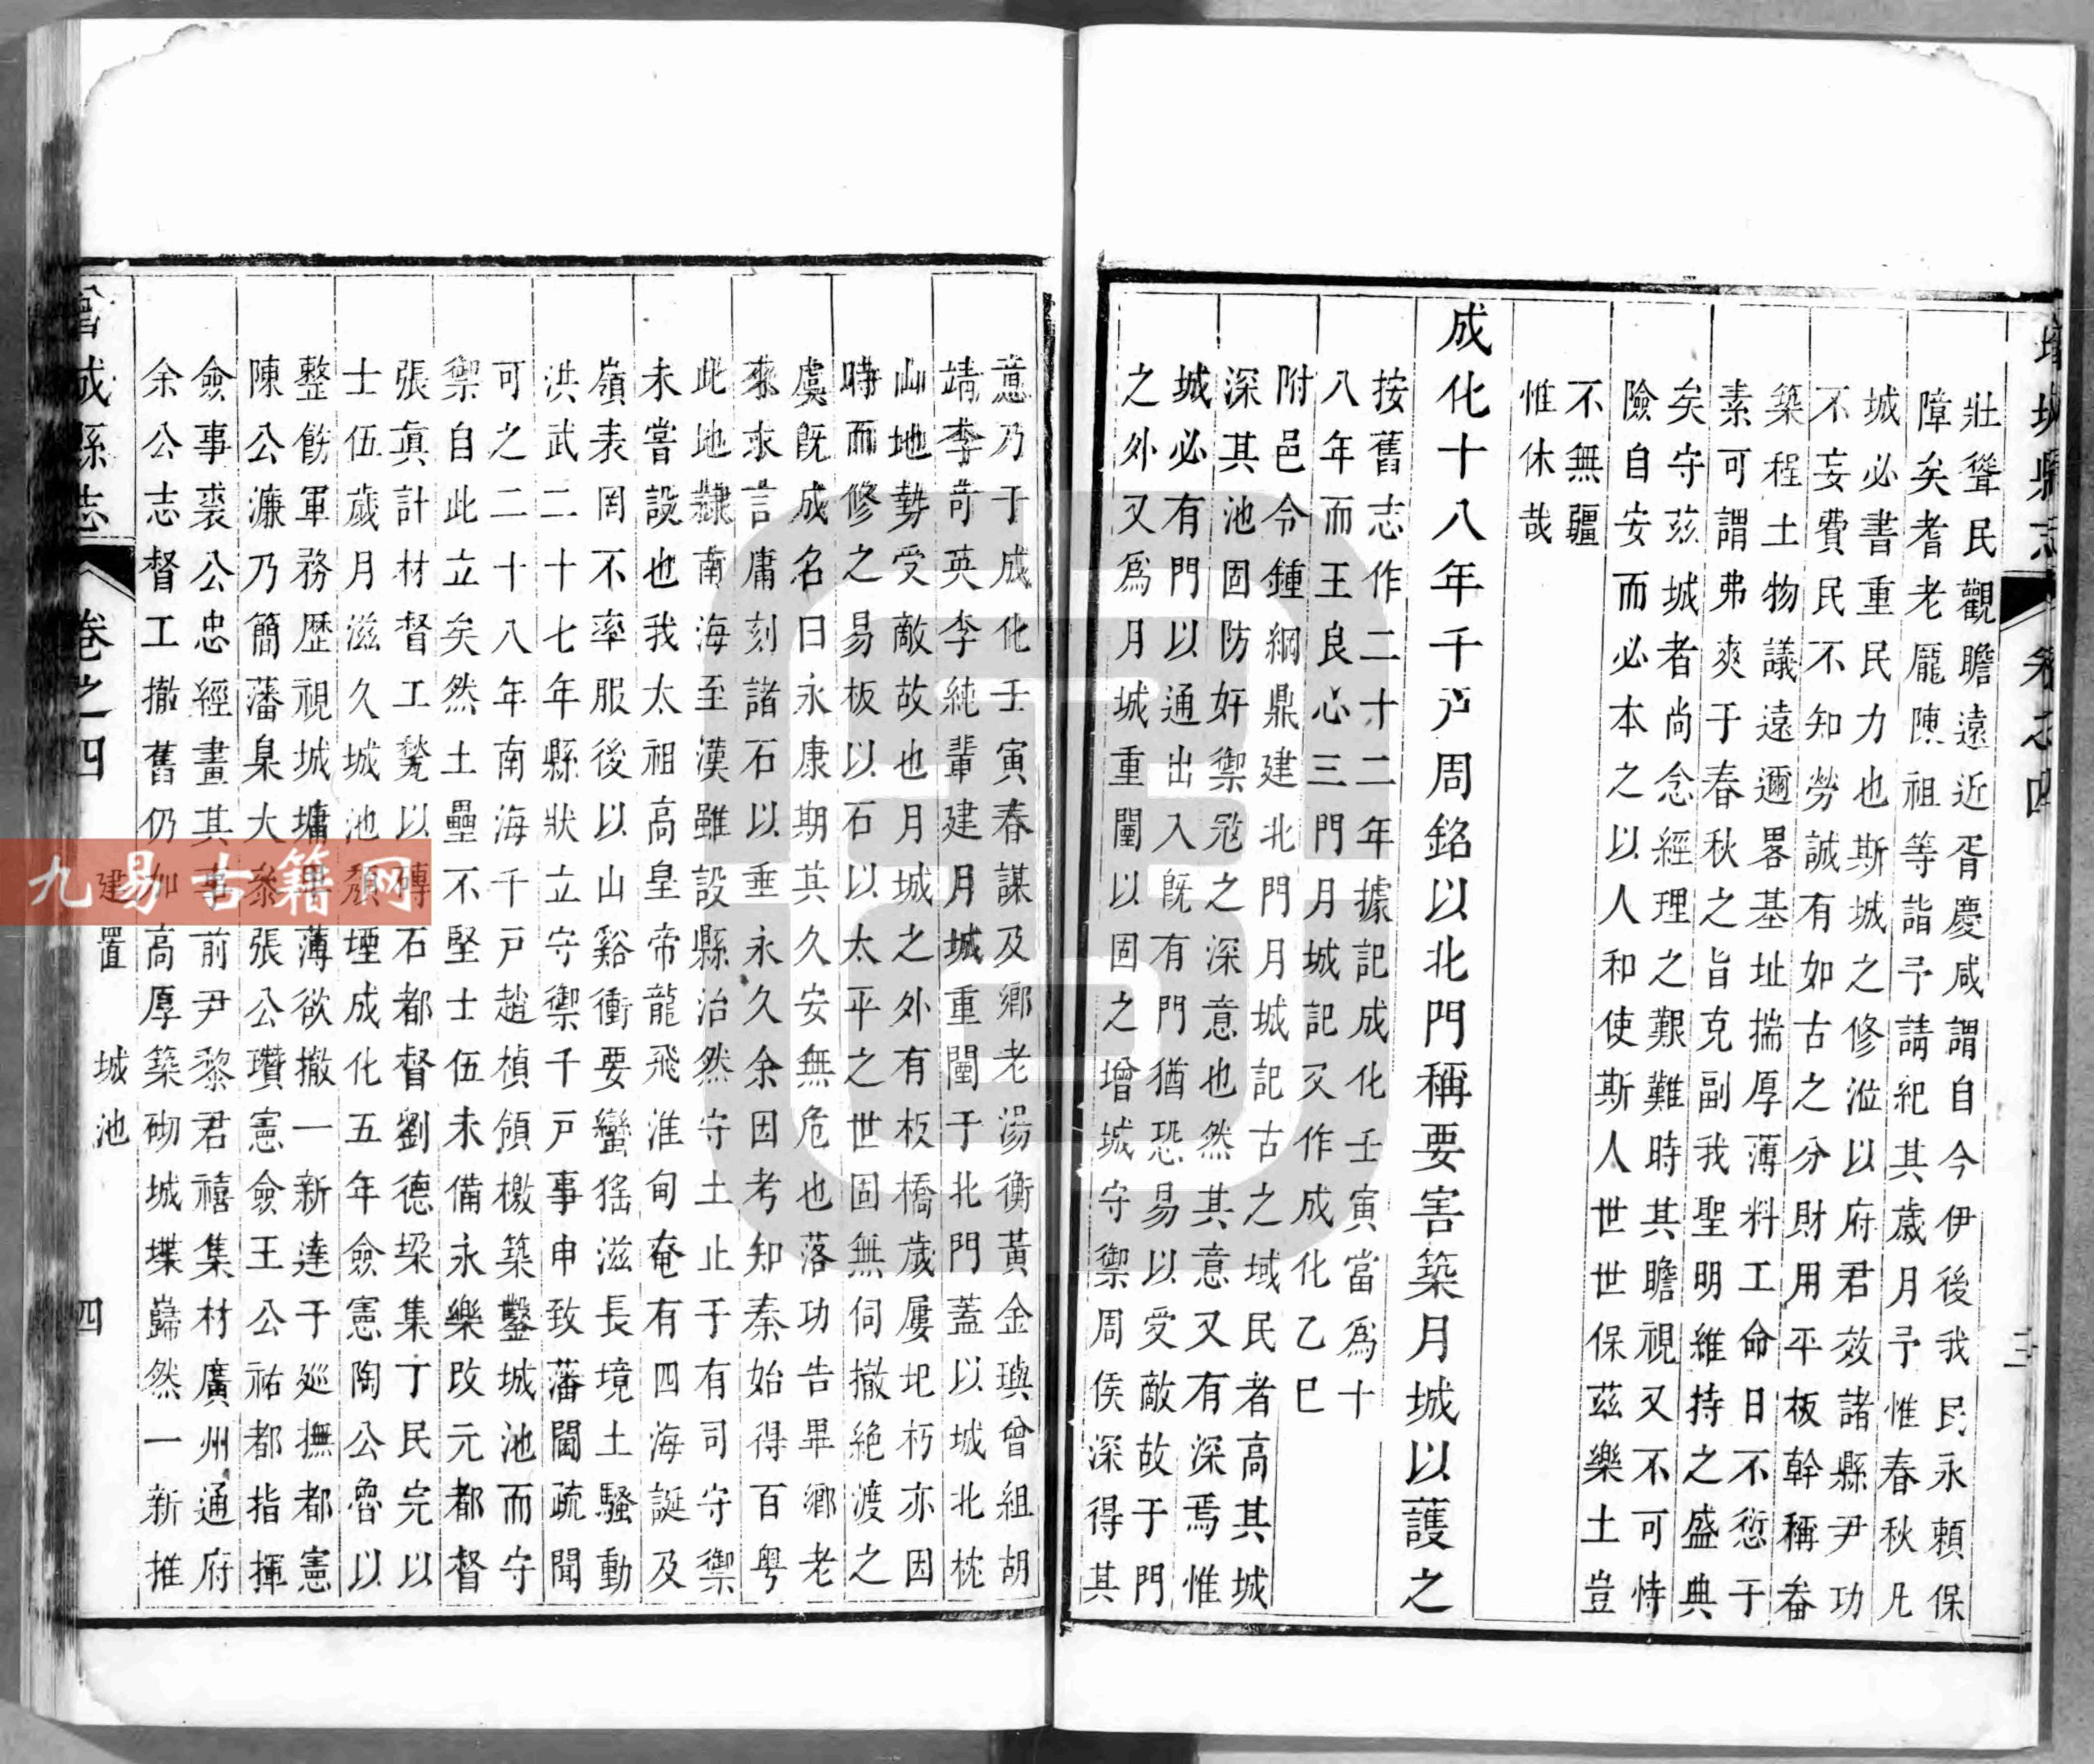 增城縣志
卷之四
三
壯聳民觀瞻遠近胥慶咸謂自今伊後我民永賴保
障矣耆老龎陳祖等詣予請紀其歲月予惟春秋凡
城必書重民力也斯城之修涖以府君效諸縣尹功
不妄費民不知勞誠有如古之分財用平板幹稱畚
築程土物議遠邇畧基址揣厚薄料工命日不愆于
素可謂弗爽于春秋之旨克副我聖明維持之盛典
矣守茲城者尚念經理之艱難時其瞻視又不可恃
險自安而必本之以人和使斯人世世保茲樂土豈
不無疆
惟休哉
成化十八年千戸周銘以北門稱要害築月城以護之
按舊志作二十二年據記成化壬寅當爲十
八年而王良心三門月城記又作成化乙巳
附邑令鍾綱鼎建北門月城記古之域民者高其城
深其池固防奸禦冦之深意也然其意又有深焉惟
城必有門以通出入旣有門猶恐易以受敵故于門
之外又爲月城重闉以固之增城守禦周侯深得其
意乃于成化壬寅春謀及鄉老湯衡黃金璵曾組胡
靖李苛英李純輩建月城重闉于北門蓋以城北枕
山地勢受敵故也月城之外有板橋歲屢圮朽亦因
時而修之易板以石以太平之世固無伺撤絶渡之
虞旣成名曰永康期其久安無危也落功告畢鄉老
來求言庸刻諸石以垂永久余因考知秦始得百粤
此地隷南海至漢雖設縣治然守土止于有司守禦
未嘗設也我太祖高皇帝龍飛淮甸奄有四海誕及
嶺表罔不率服後以山谿衝要蠻猺滋長境土騷動
洪武二十七年縣狀立守禦千戸事申致藩閫疏聞
可之二十八年南海千戸趙楨領檄築鑿城池而守
禦自此立矣然土壘不堅士伍未備永樂改元都督
張眞計材督工甃以磚石都督劉德琛集丁民完以
士伍歲月滋久城池頹堙成化五年僉憲陶公魯以
整飭軍務歷視城墉卑薄欲撤一新達于廵撫都憲
陳公濂乃簡藩臬大叅張公瓚憲僉王公祐都指揮
僉事裘公忠經畫其事前尹黎君禧集材廣州通府
余公志督工撤舊仍加高厚築砌城堞巋然一新推
增城縣志
卷之四
建置 城池
四
九易古籍网